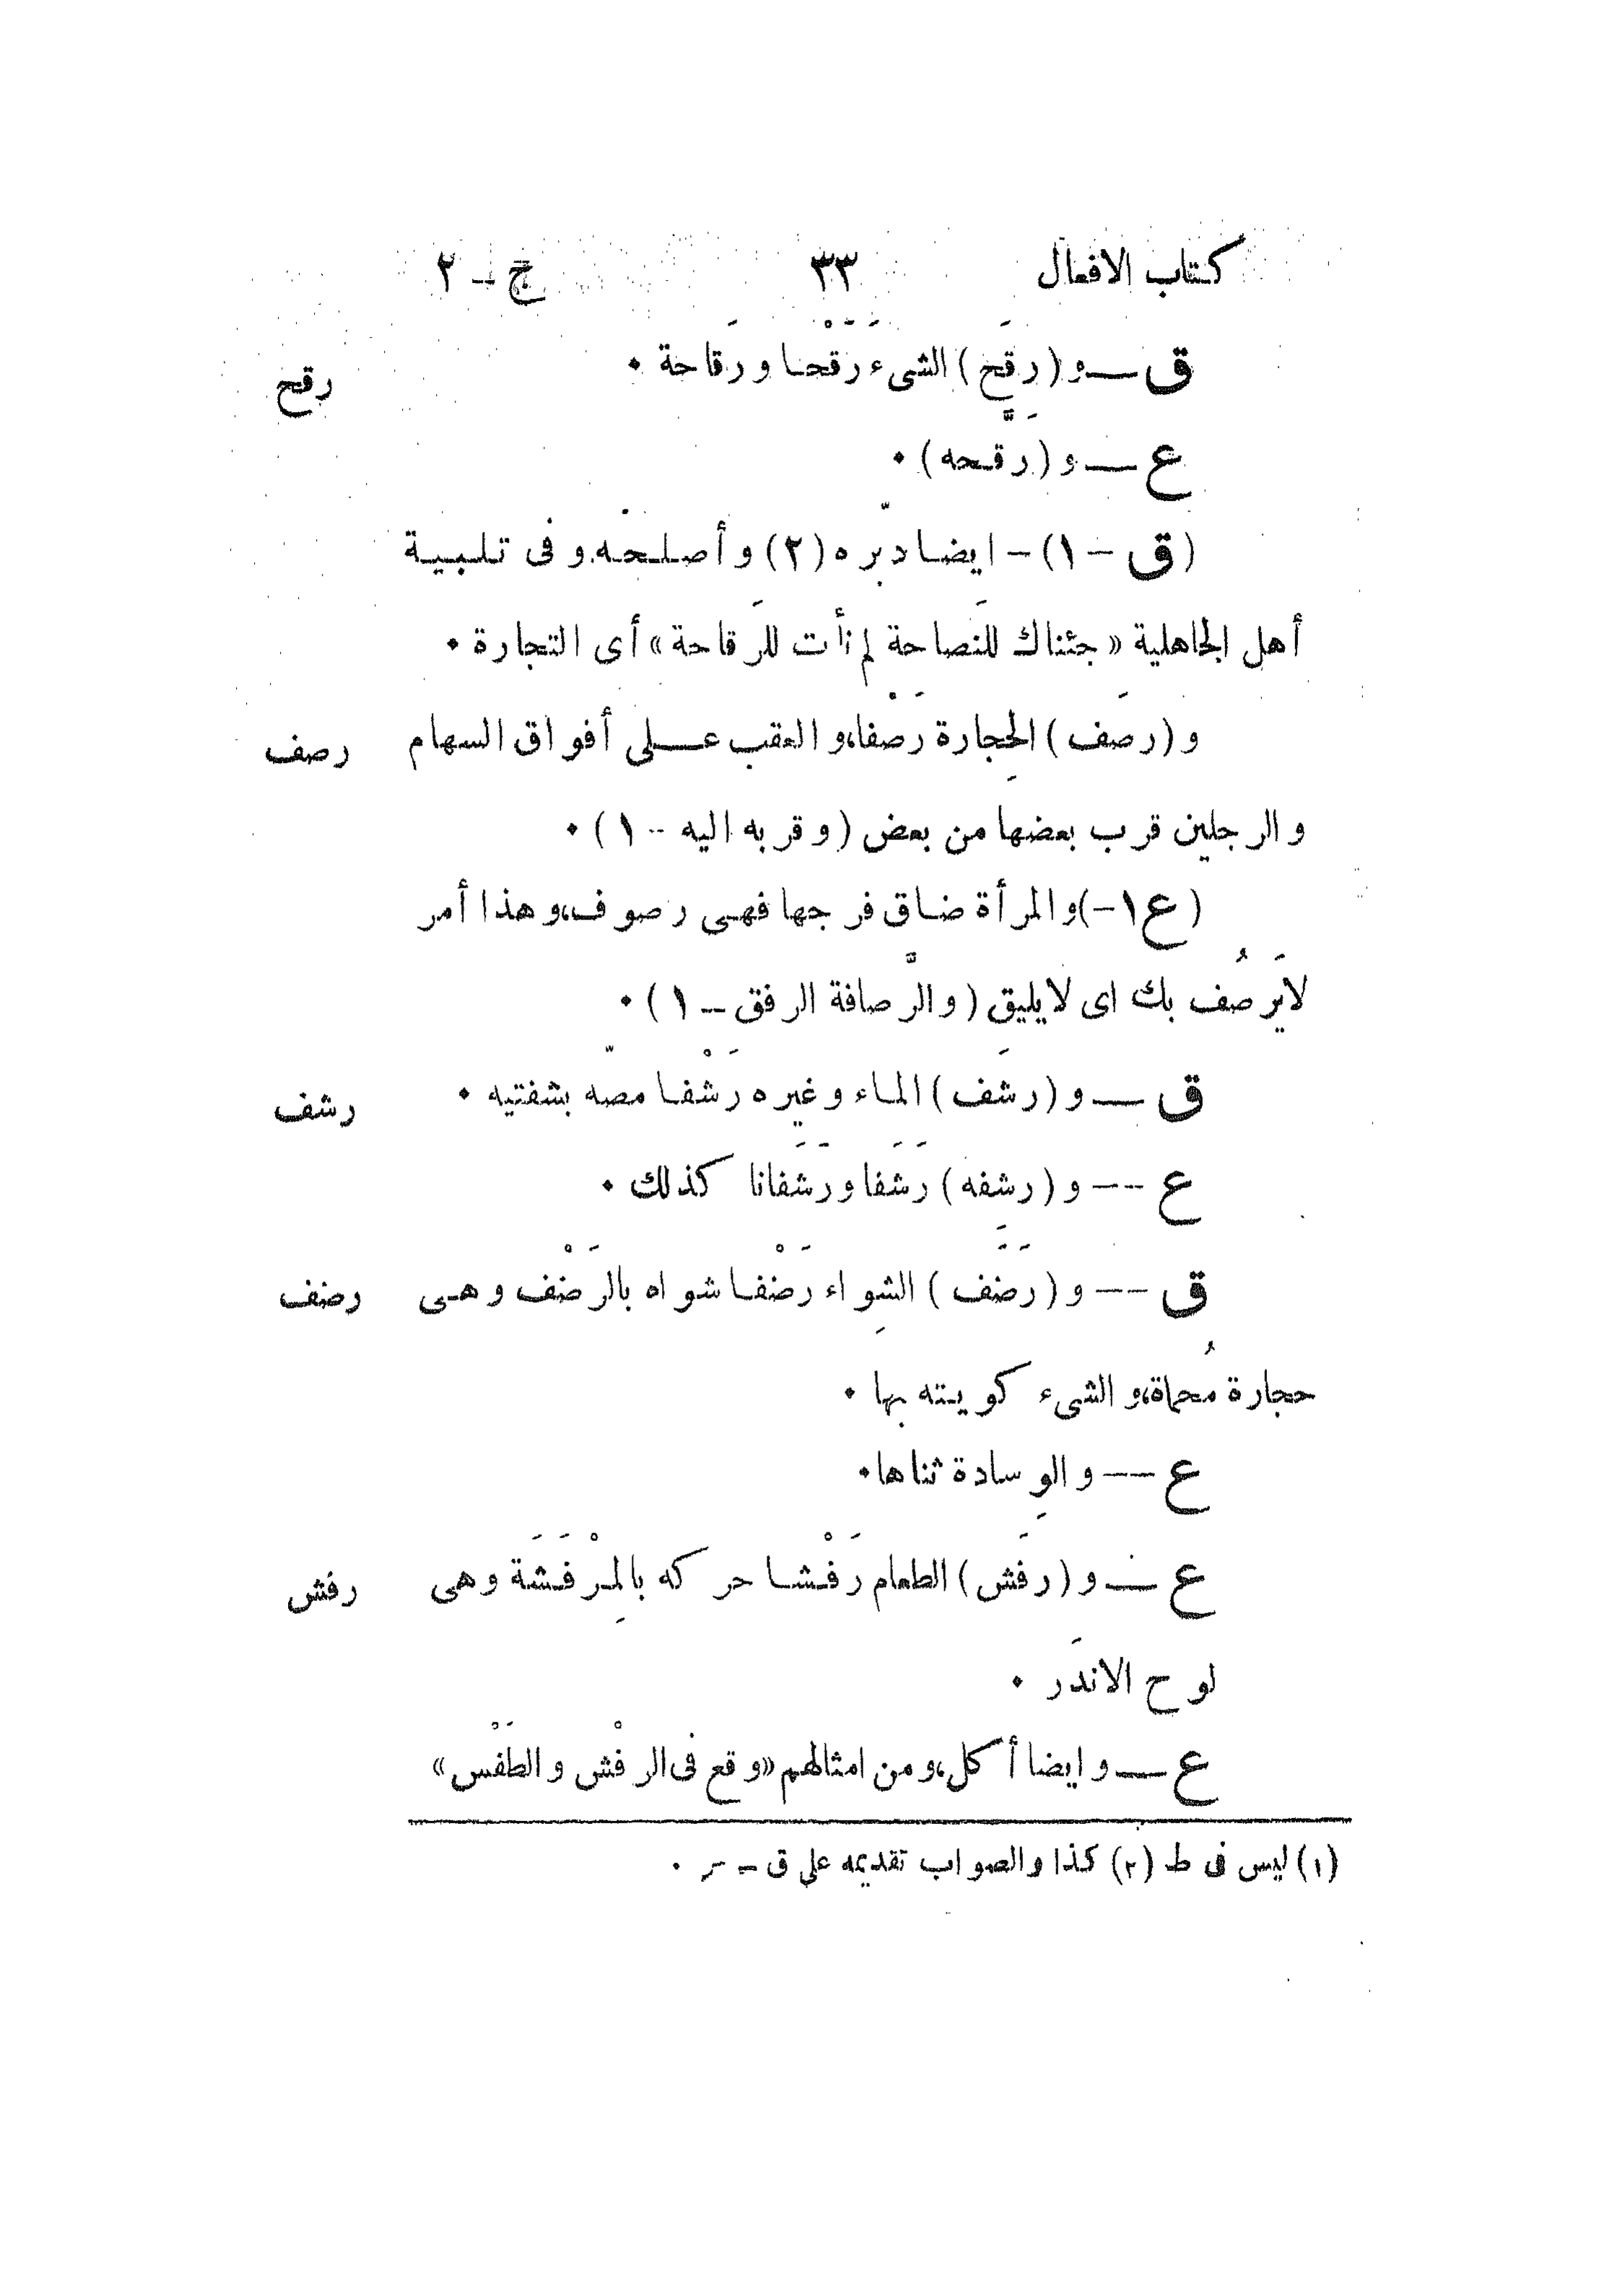 كتاب الافعال ٣٣ ج – ٢
ق — و (رقَح) الشىء رَقَْحا ورَقاحة • رقح
ع — و (رَقَّحه) •
(ق – ١) – ايضا دبّره (٢) وأصلحه وفى تلبية
أهل الجاهلية «جئناك للنَصاحة لم نأت للرَقاحة» أى التجارة •
و (رصَف) الحِجارة رَصْفا، والعقب على أفواق السهام رصف
والرجلين قرب بعضها من بعض (وقربه اليه – ١) •
(ع ١ –) والمرأة ضاق فرجها فهى رصوف، وهذا أمر
لايَرصُف بك اى لايليق (والرَّصافة الرفق – ١) •
ق — و (رشَف) الماء وغيره رَشْفا مصّه بشفتيه • رشف
ع –– و (رشِفه) رَشَفا ورَشَفانا كذلك •
ق –– و (رَضَف) الشِواء رَضْفا شواه بالرَضْف وهى رضف
حجارة مُحماة، والشىء كويته بها •
ع –– والوِسادة ثناها •
ع — و (رفَش) الطعام رَفْشا حركه بالمِرْفَشَة وهى رفش
لوح الاندَر •
ع — وايضا أكل، ومن امثالهم «وقع فى الرفْش والطَفْس»
(١) ليس فى ط (٢) كذا والصواب تقديمه على ق –